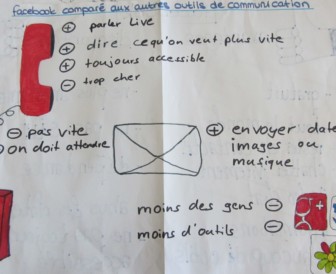 facebook comparé aux autres outils de communication
⊕ parler live
⊕ dire cequ'on veut plus vite
⊕ toujours accessible
⊖ trop cher
⊖ pas vite
⊖ on doit attendre
⊕ envoyer date
images ou
musique
moins des gens ⊖
moins d'outils ⊖